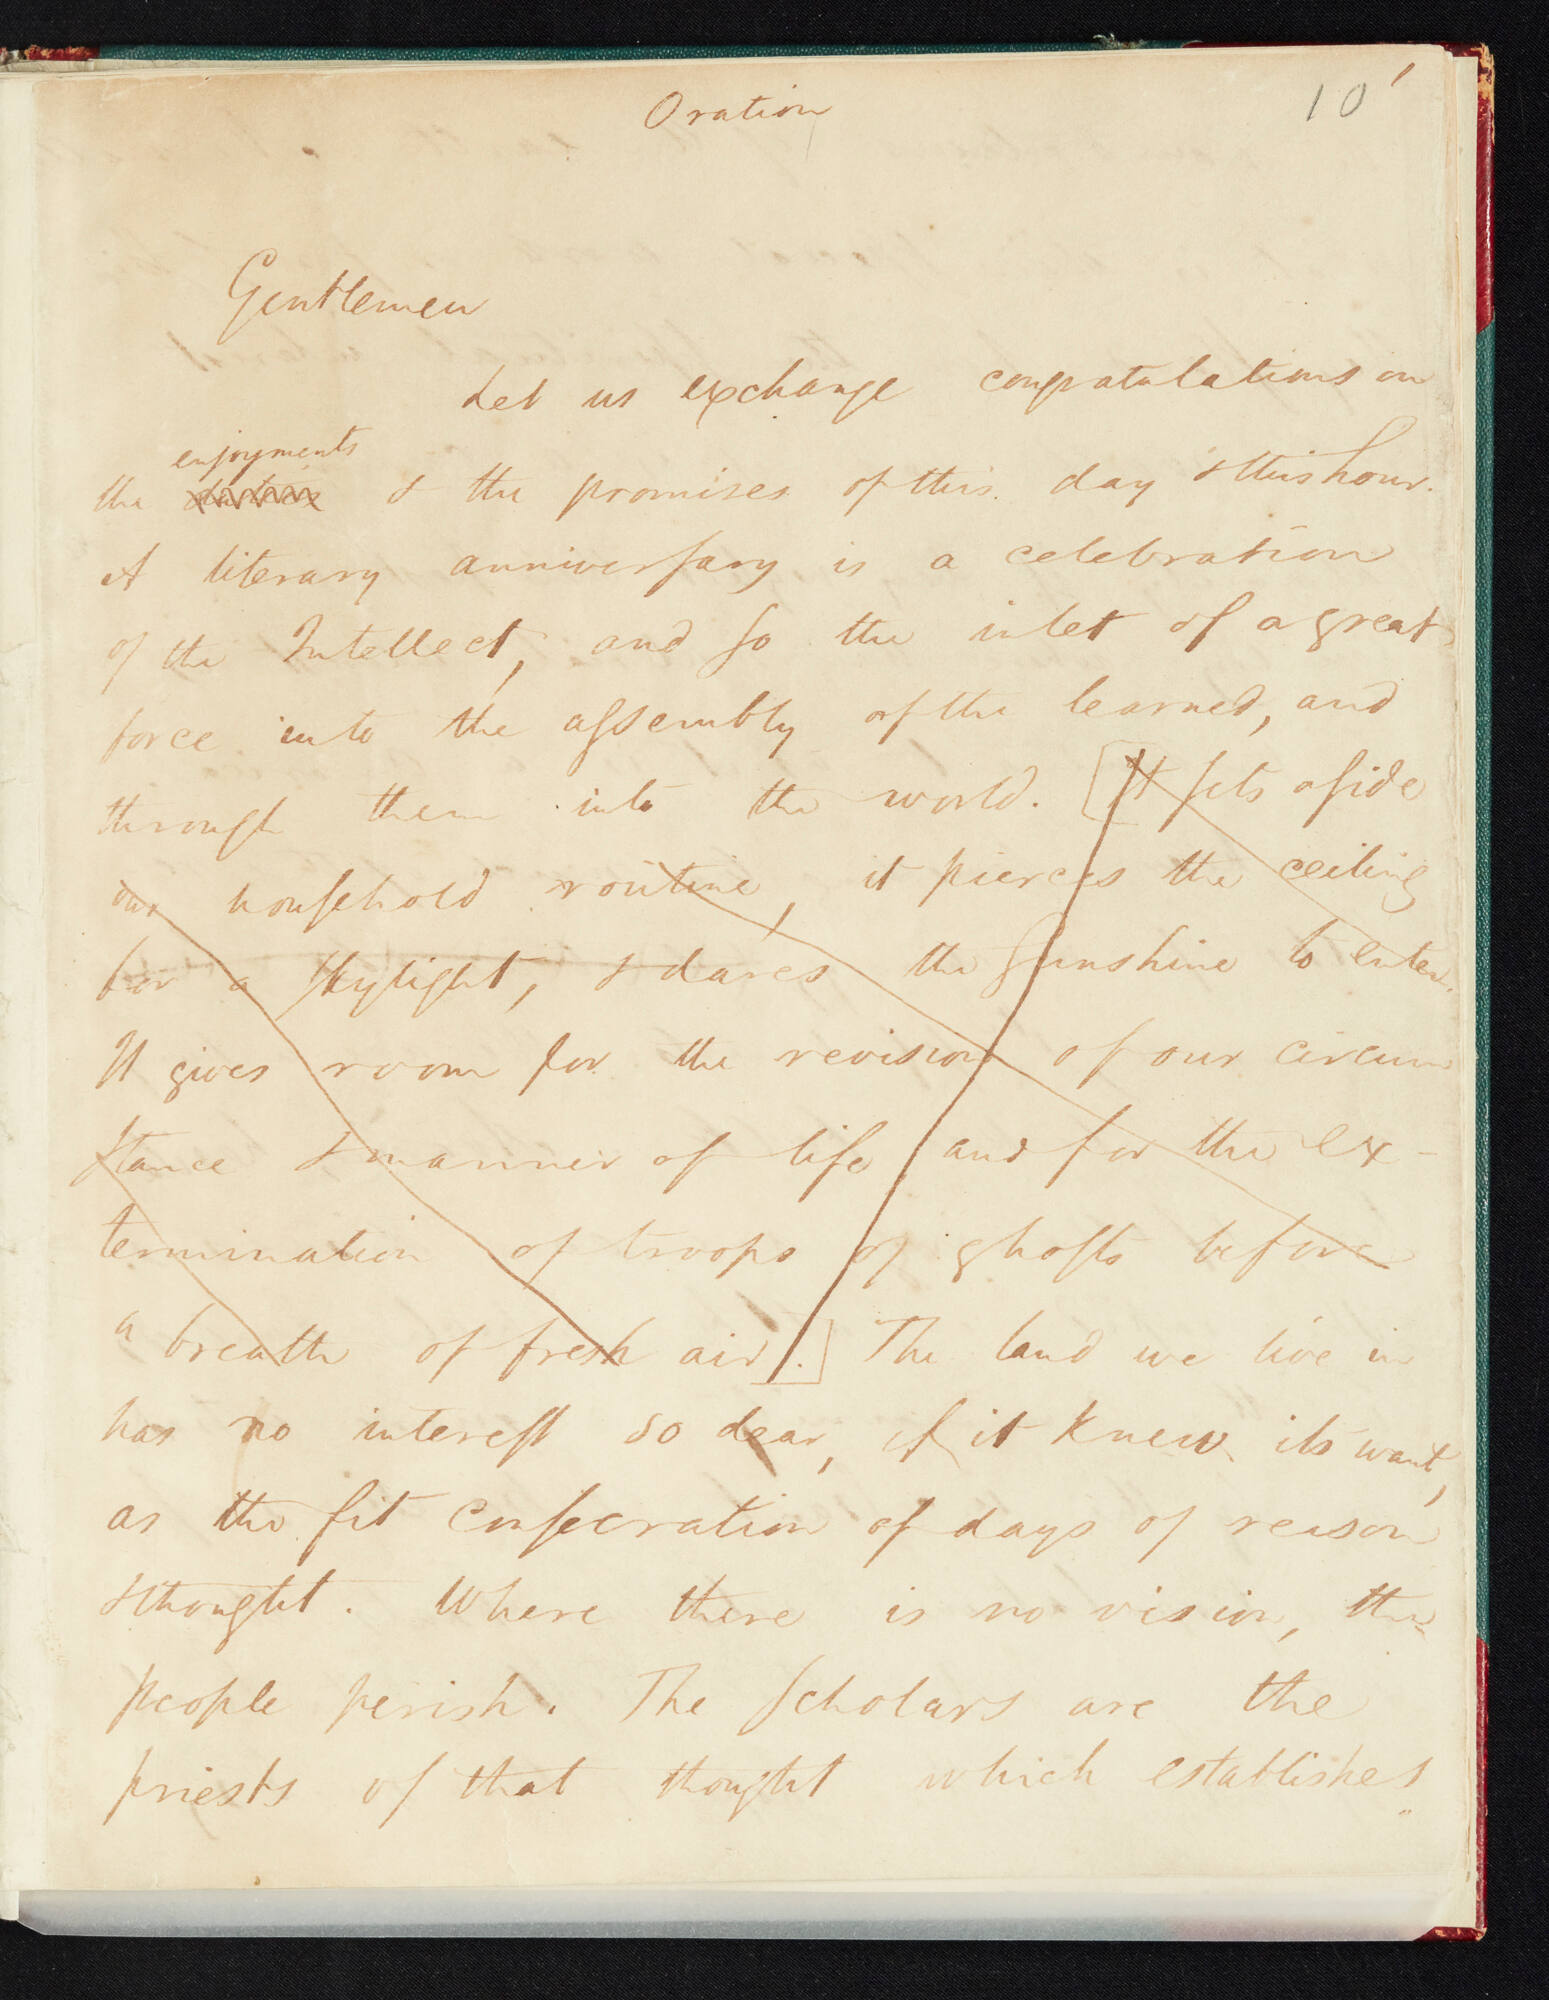 Oration
10
Gentlemen
Let us exchange congratulations on
enjoyments
the & the promises of this day & this hour.
A literary anniversary is a celebration
of the Intellect, and so the inlet of a great
force into the assembly of the learned, and
through them into the world. [It sets aside
our household routine, it pierces the ceiling
for a skylight, & dares the sunshine to enter.
It gives room for the revision of our circum
stance & manner of life and for the ex-
termination of troops of ghosts before
a breath of fresh air.] The land we live in
has no interest so dear, if it knew its want,
as the fit consecration of days of reason
& thought. Where there is no vision, the
people perish. The Scholars are the
priests of that thought which establishes